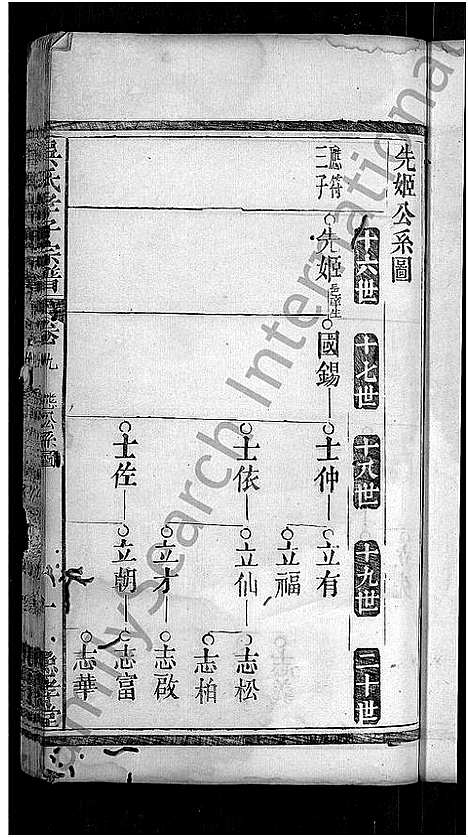 先姬公系圖
十六世
十七世
十八世
十九世
二十世
應符三子
先姬 邑庠生
國錫
士仲
立有
立福
士依
立仙
志松
志柏
立才
志啟
士佐
立朝
志富
志華
吳氏孝子宗譜
卷九
公系圖
一
FamilySearch International